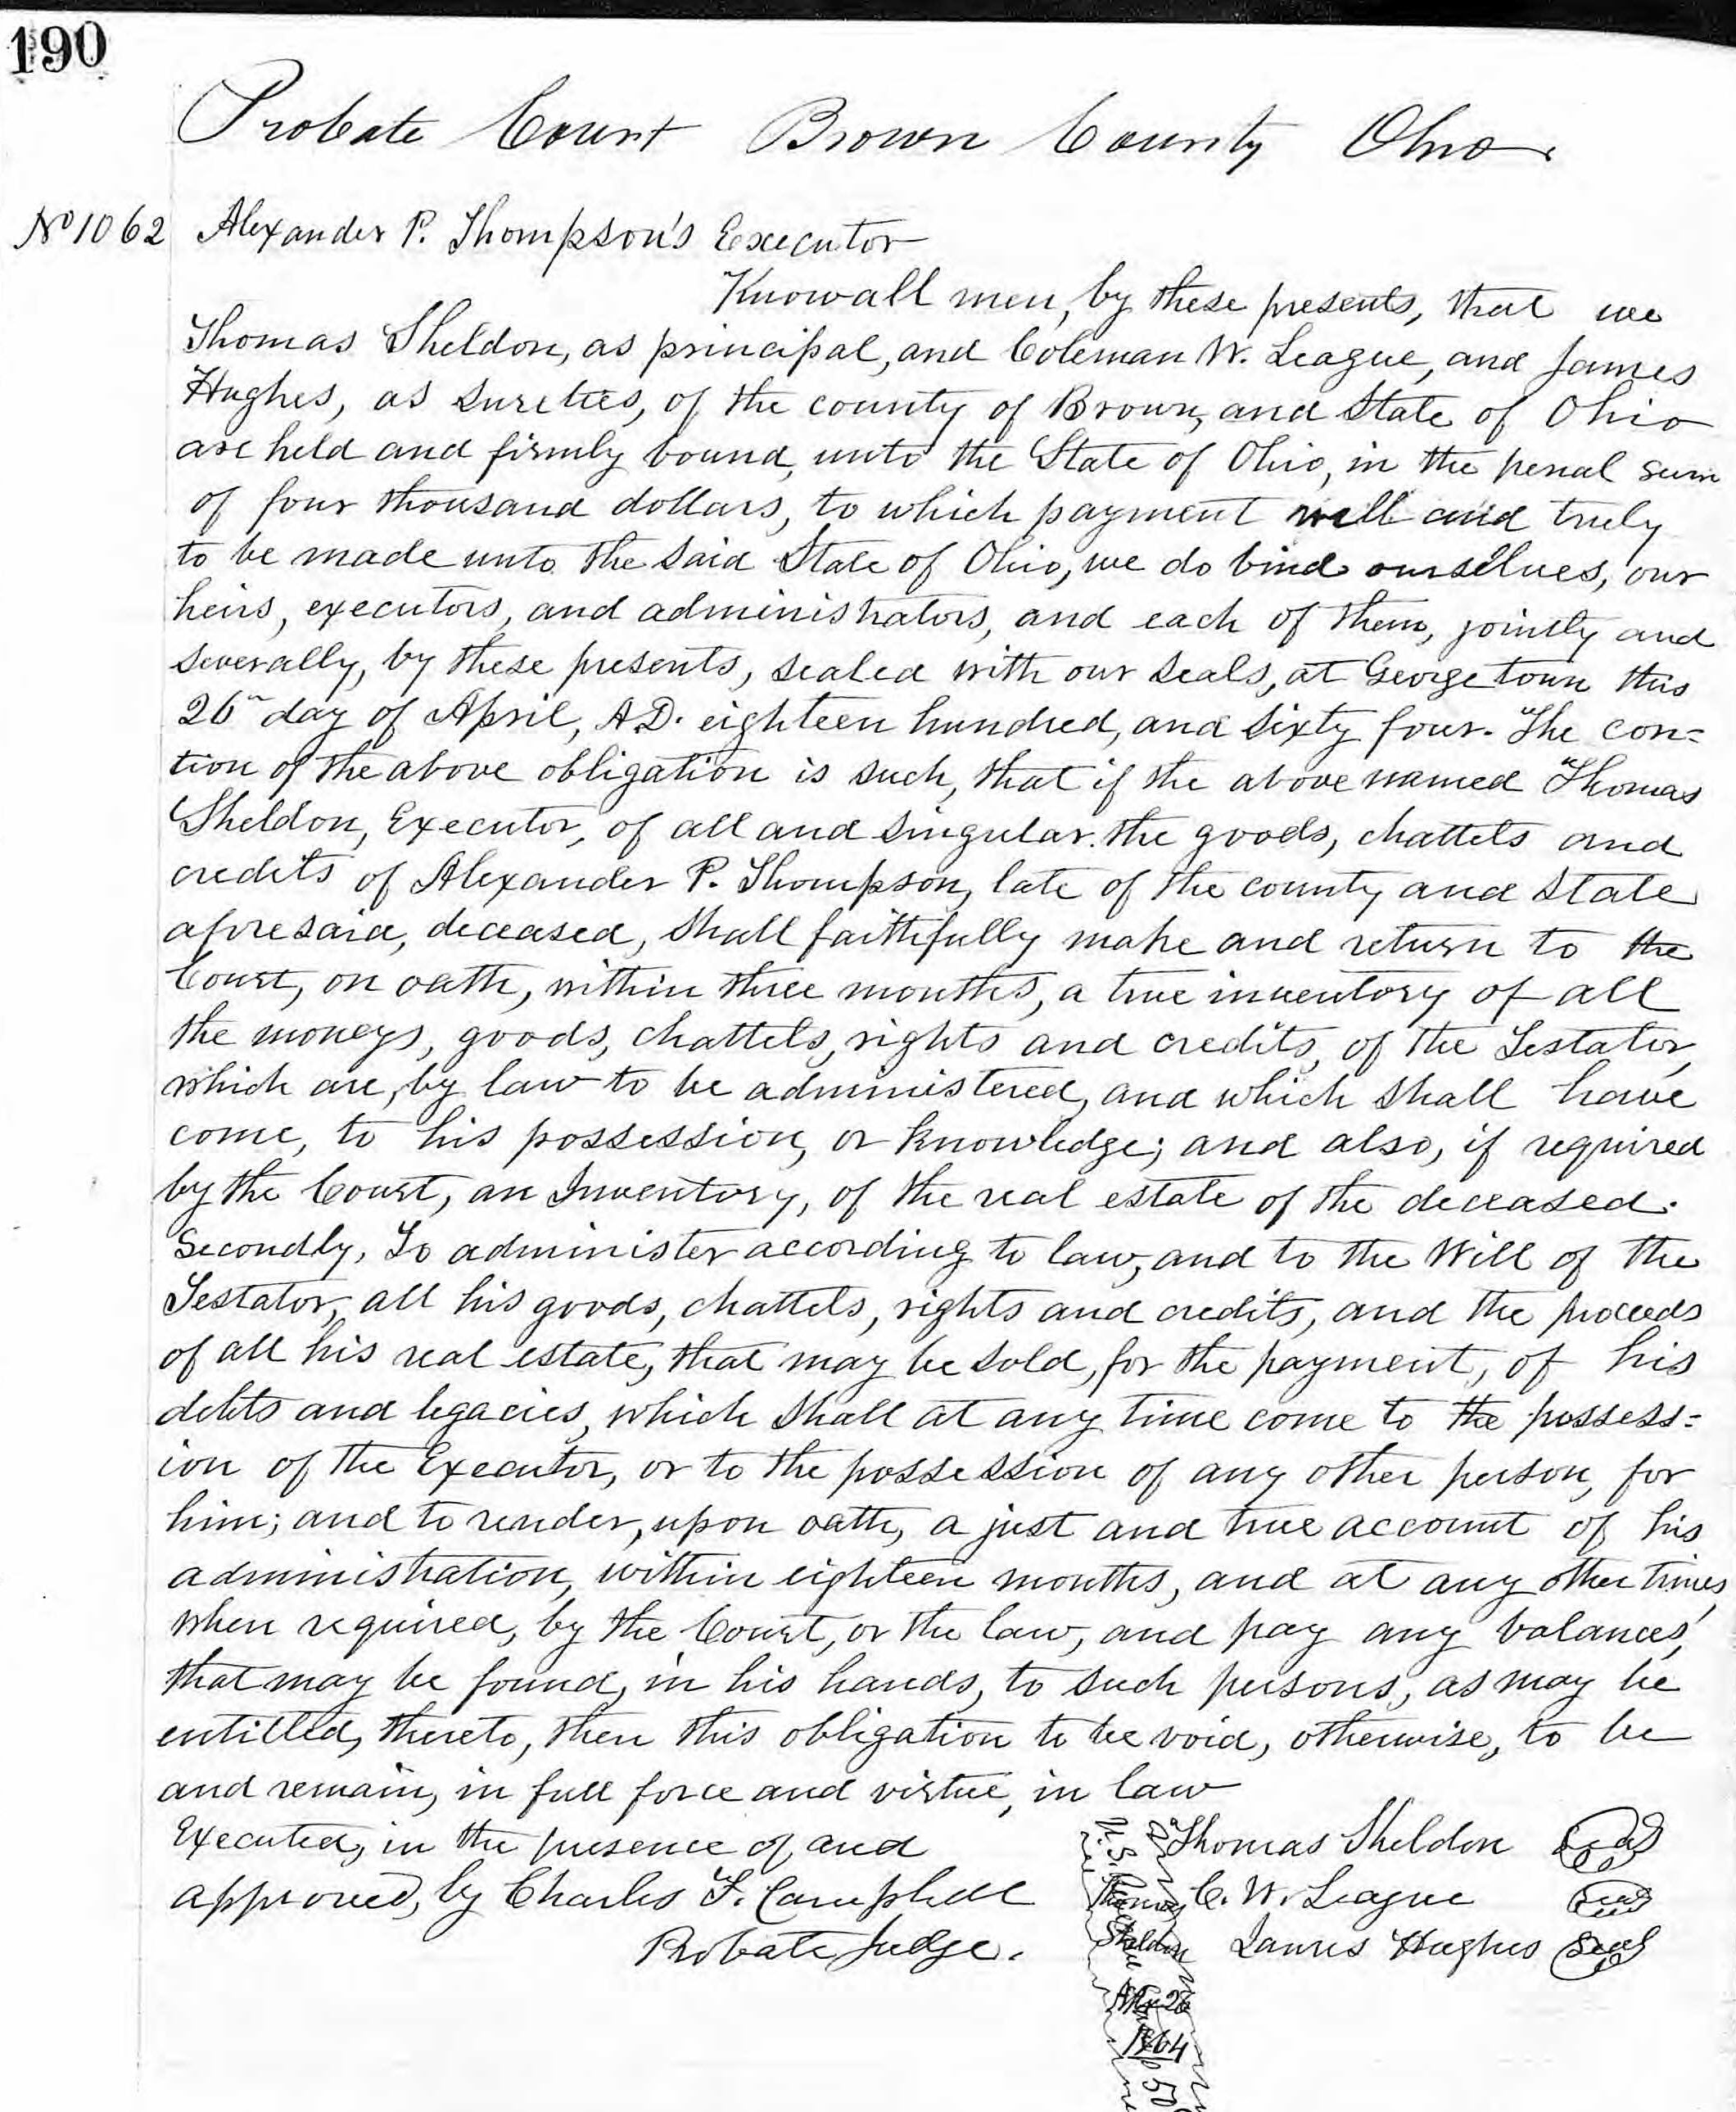 190
Probate Court Brown County Ohio.
No 1062 Alexander P. Thompson's Executor
Know all men, by these presents, that we
Thomas Sheldon, as principal, and Coleman W. League, and James
Hughes, as Sureties, of the county of Brown, and State of Ohio
are held and firmly bound, unto the State of Ohio, in the penal sum
of four thousand dollars, to which payment well and truly
to be made unto the said State of Ohio, we do bind ourselves, our
heirs, executors, and administrators, and each of them, jointly and
severally, by these presents, sealed with our seals, at Georgetown this
26" day of April, A.D. eighteen hundred, and Sixty four. The con=
tion of the above obligation is such, that if the above named Thomas
Sheldon, Executor, of all and singular the goods, chattels and
credits of Alexander P. Thompson, late of the county and State
aforesaid, deceased, shall faithfully make and return to the
Court, on oath, within three months, a true inventory of all
the moneys, goods, chattels, rights and credits, of the Testator,
which are, by law to be administered, and which shall have
come, to his possession, or knowledge; and also, if required
by the Court, an Inventory, of the real estate of the deceased.
Secondly, To administer according to law, and to the Will of the
Testator, all his goods, chattels, rights and credits, and the proceeds
of all his real estate, that may be sold, for the payment, of his
debts and legacies, which shall at any time come to the possess=
ion of the Executor, or to the possession of any other person, for
him; and to render, upon oath, a just and true account of his
administration, within eighteen months, and at any other times,
when required, by the Court, or the law, and pay any balances,
that may be found, in his hands, to such persons, as may be
entitled, thereto, then this obligation to be void, otherwise, to be
and remain, in full force and virtue, in law
Executed, in the presence of and
approved, by Charles F. Campbell
Probate Judge.
Thomas Sheldon Seal
C. W. League Seal
James Hughes Seal
Thomas
Sheldon
Apr 26
1864